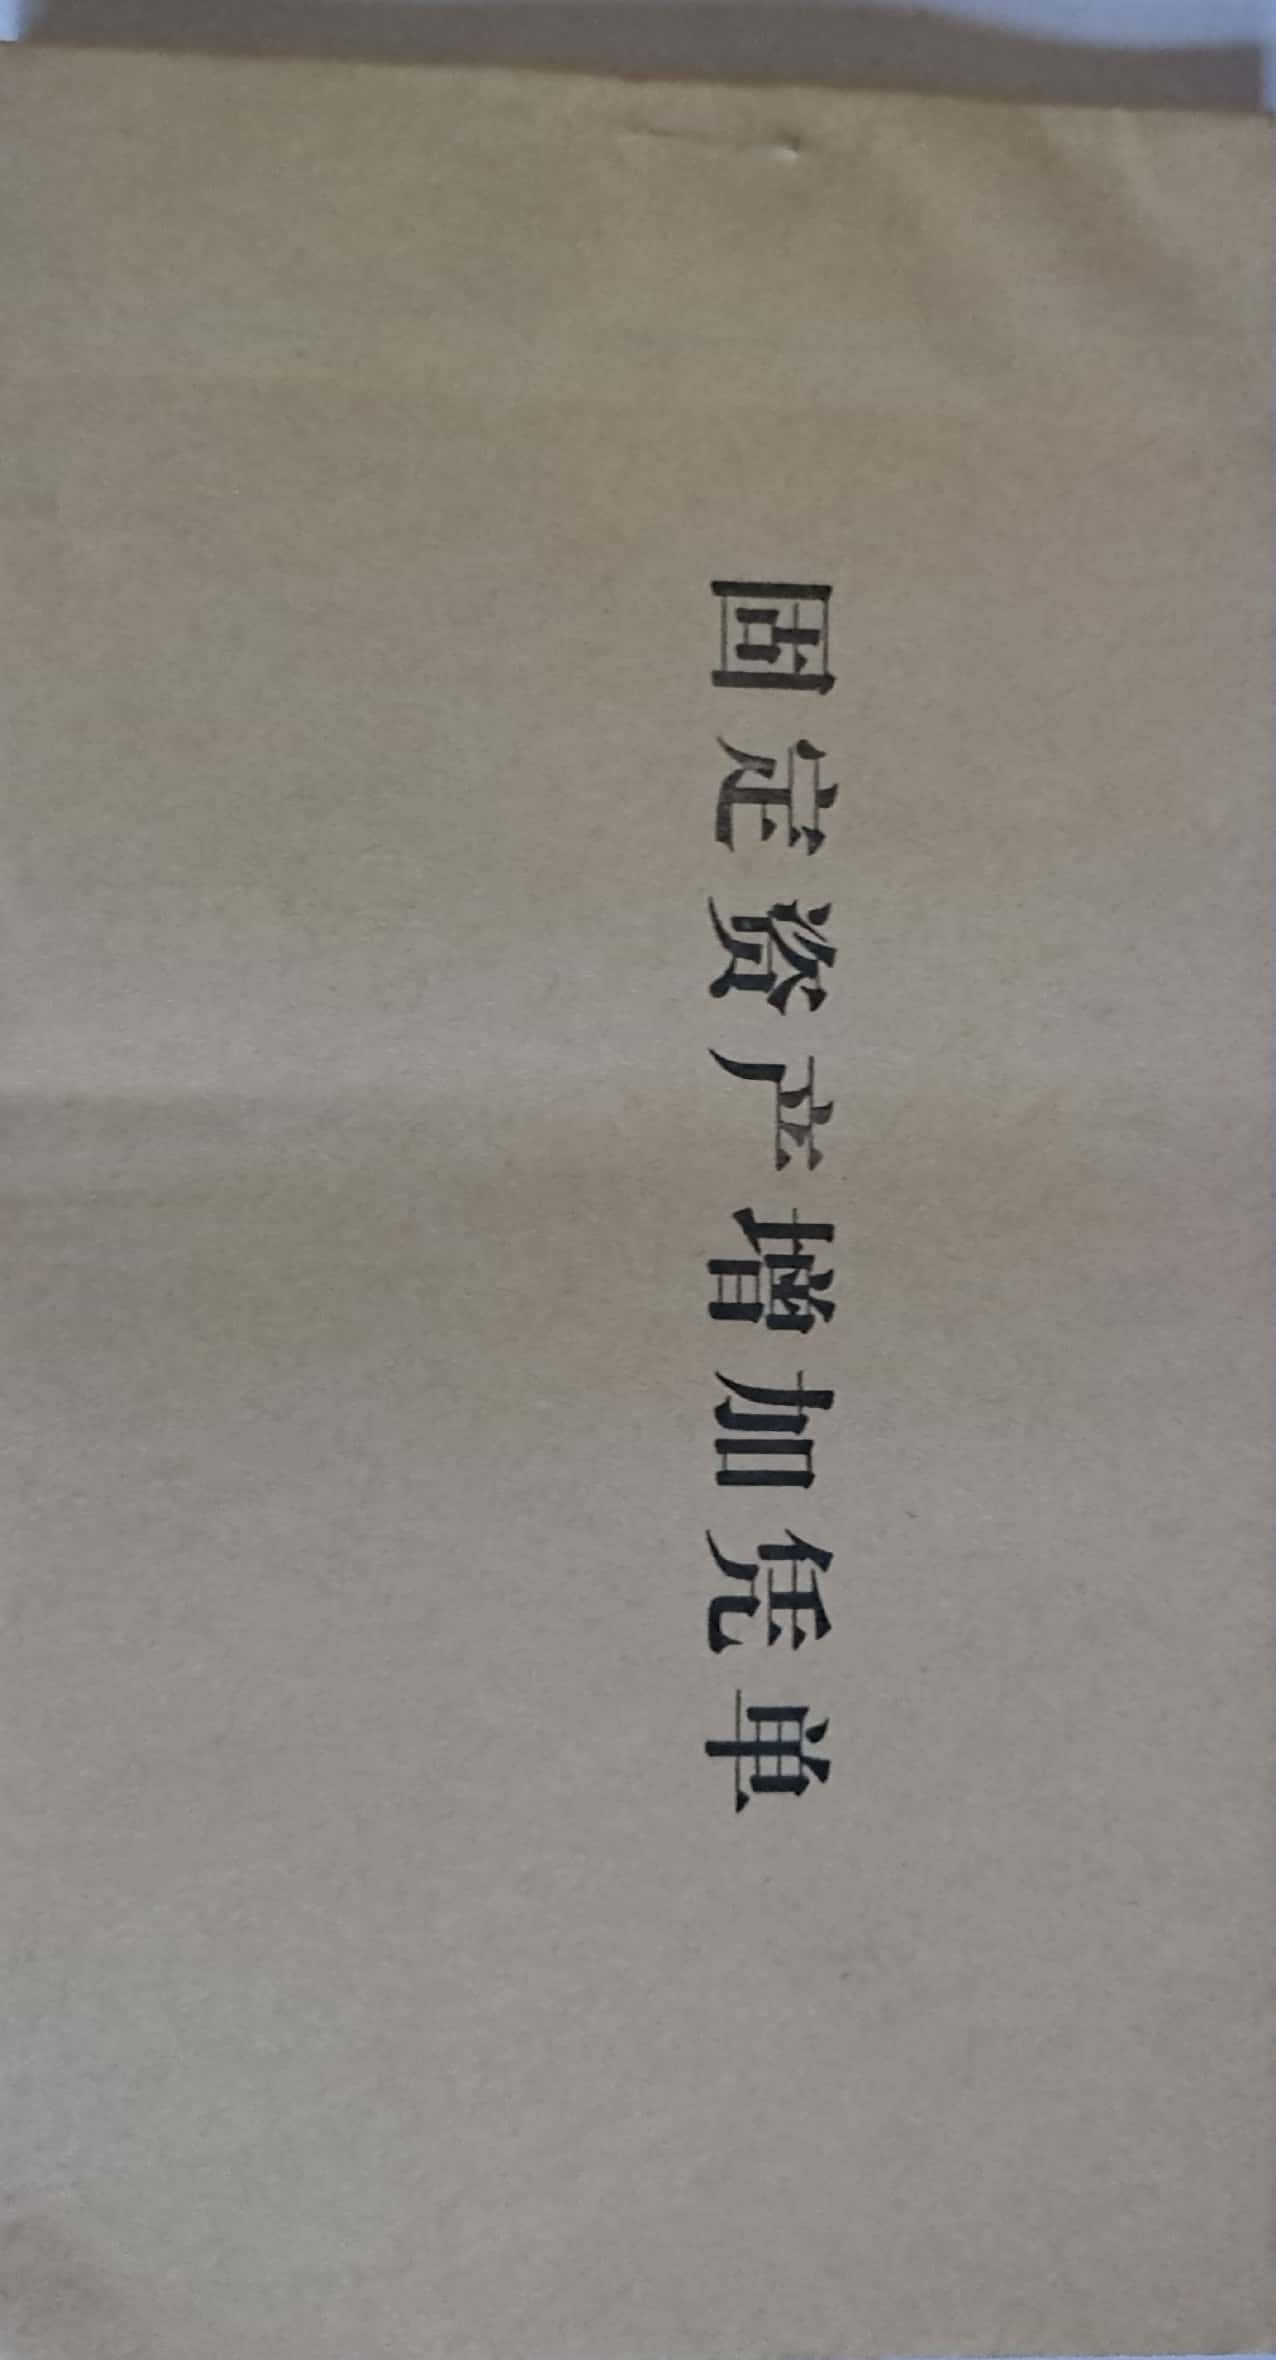 固定资产增加凭单